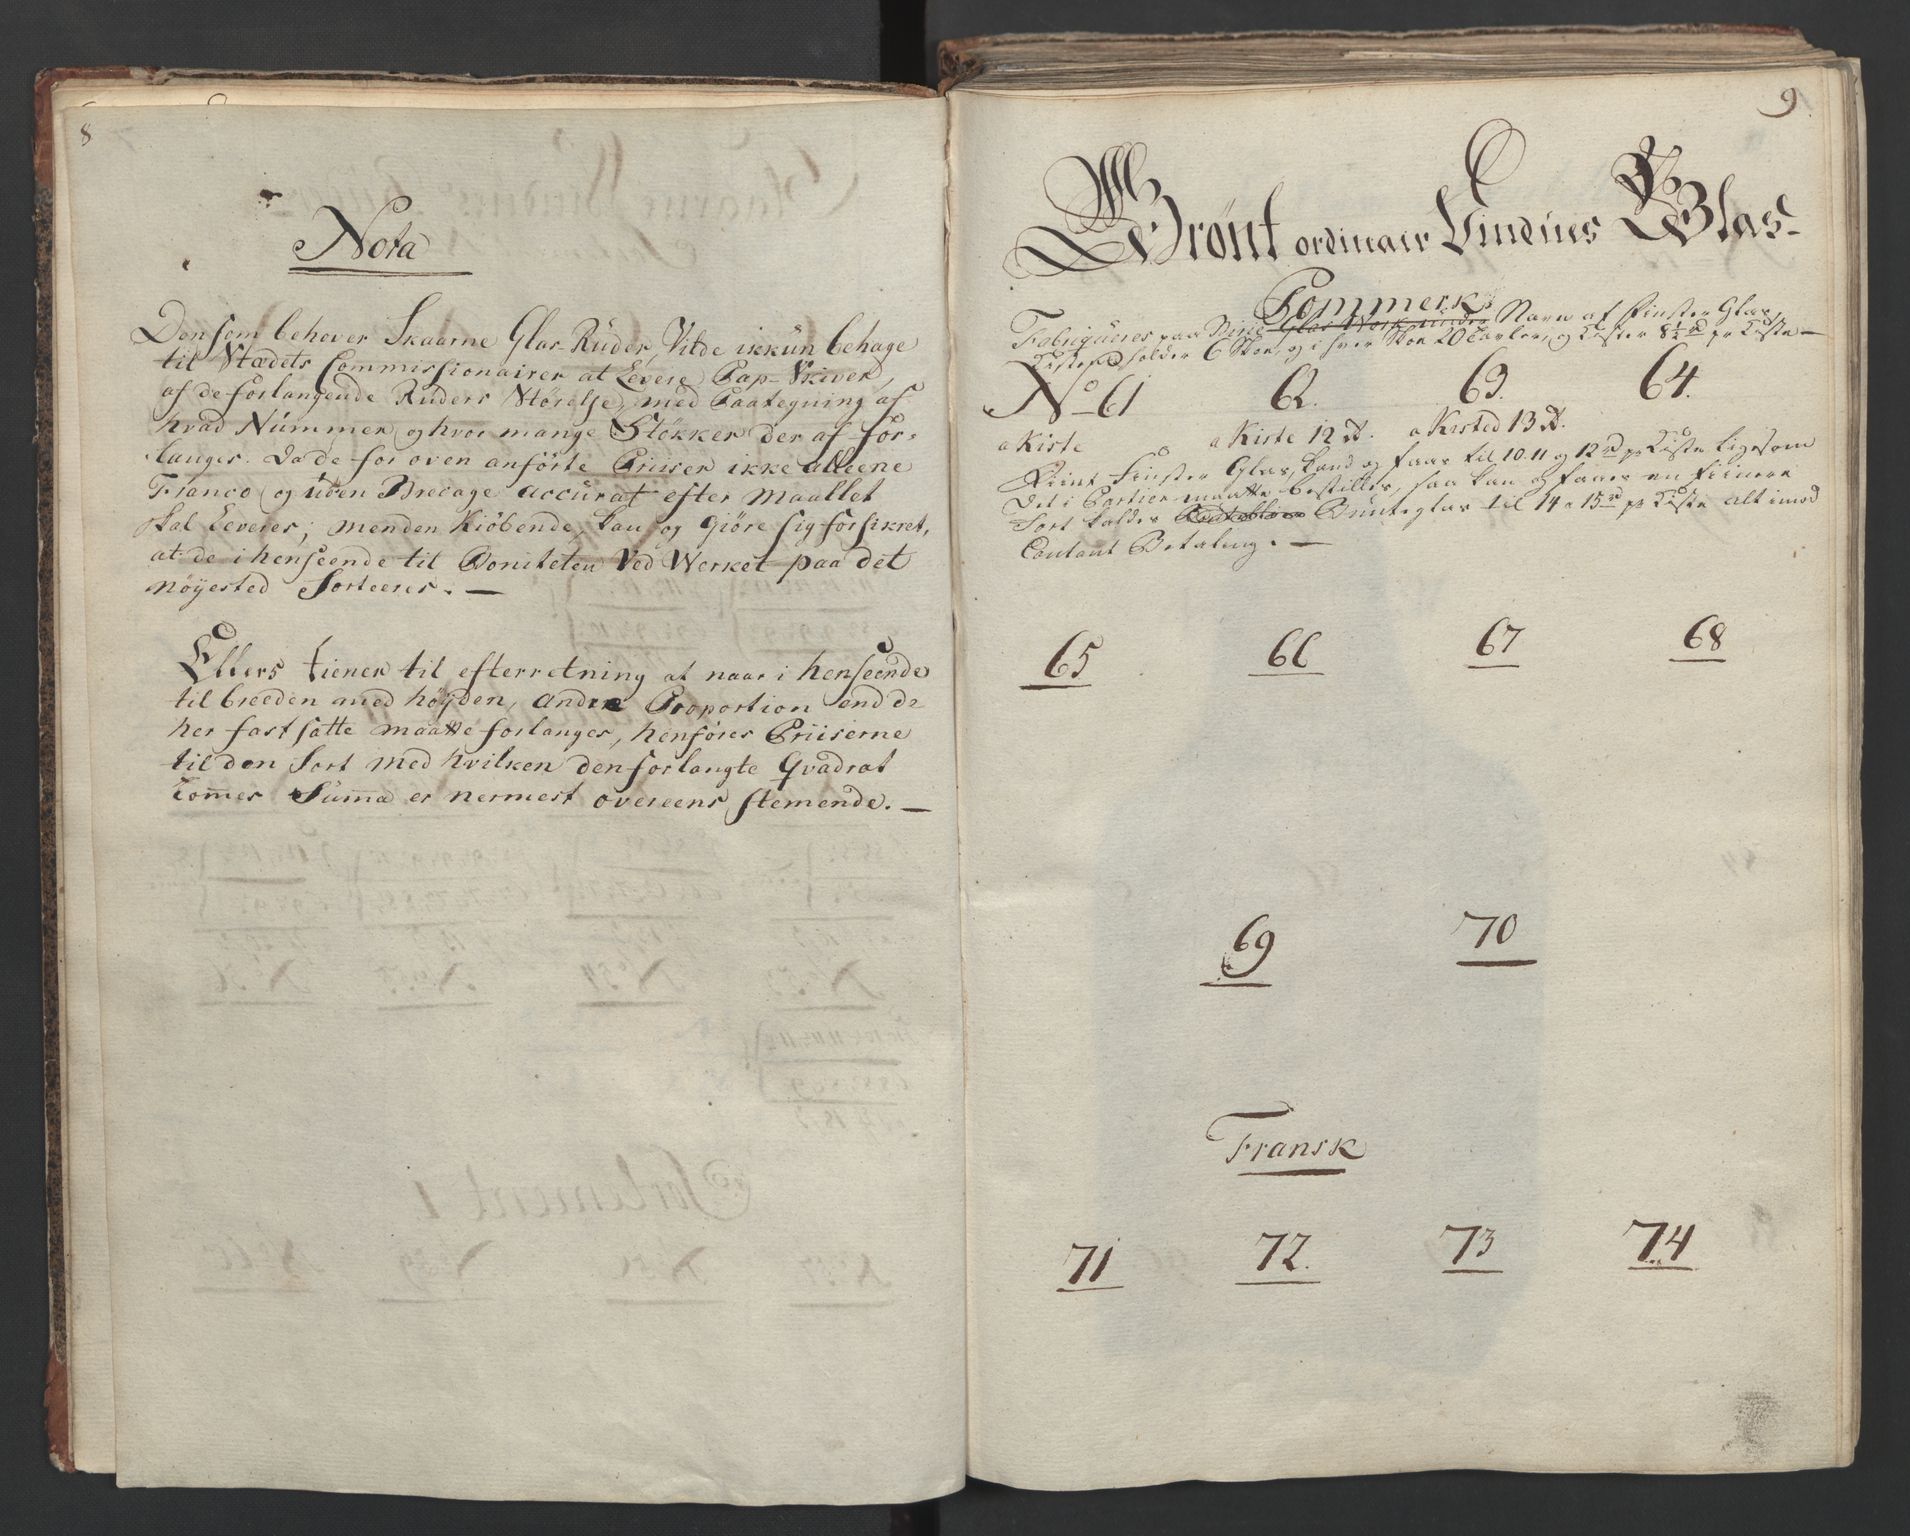 8
Nota
Den som behøver Skaarne Glas-Ruder, Vilde ikkun behage
til Stædets Commissionairer at Levere Pap-Skiver,
af de forlangende Ruders Størelse, med Paategning af
hvad Nummer og hvor mange Støkker der af for-
langes. Da de for oven anførte Priiser ikke alleene
Franco og uden Brecage accurat efter Maallet
skal Leveres; menden Kiøbende, kan og giøre sig forsikret,
at de i henseende til Boniteten Ved Werket paa det
nøyested Sorteeres. —
Ellers tiener til efterretning at naar i henseende
til breeden med høyden, andre Proportion end de
her fastsatte maatte forlanges, henføres Priiserne
til den Sort med hvilken den forlangte Qvadrat
Tom̄es Sum̄a er nermest overeensstemende. —
9
Grønt ordinair Vindues Glas-
Pommersk
Fabriqueres paa Glas Werk under Navn af Finster Glas,
Kisten holder 6 Skor, og i hver Skor 20 Tavler, og Koster 8½ rd pr Kiste —
No 61 62. 63. 64.
a Kiste a Kiste 12 rd. a Kisted 13 rd.
Finster Glas, kand og faaes til 10. 11 og 12 rd pr Kiste ligesom
det i Partier maatte bestilles, saa kan og faaes en fiinere
Sort kaldes Bunteglas til 14 a 15 rd pr Kiste alt imod
Contant Betaling. —
65 66 67 68
69 70
Fransk
71 72. 73 74